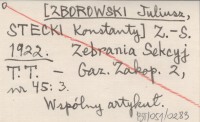 [ZBOROWSKI Juliusz,
STECKI Konstanty] Z.-S.
1922. Zebrania Sekcyj
T.T. — Gaz. Zakop. 2,
nr 45: 3.
Wspólny artykuł.
BB/051/0283